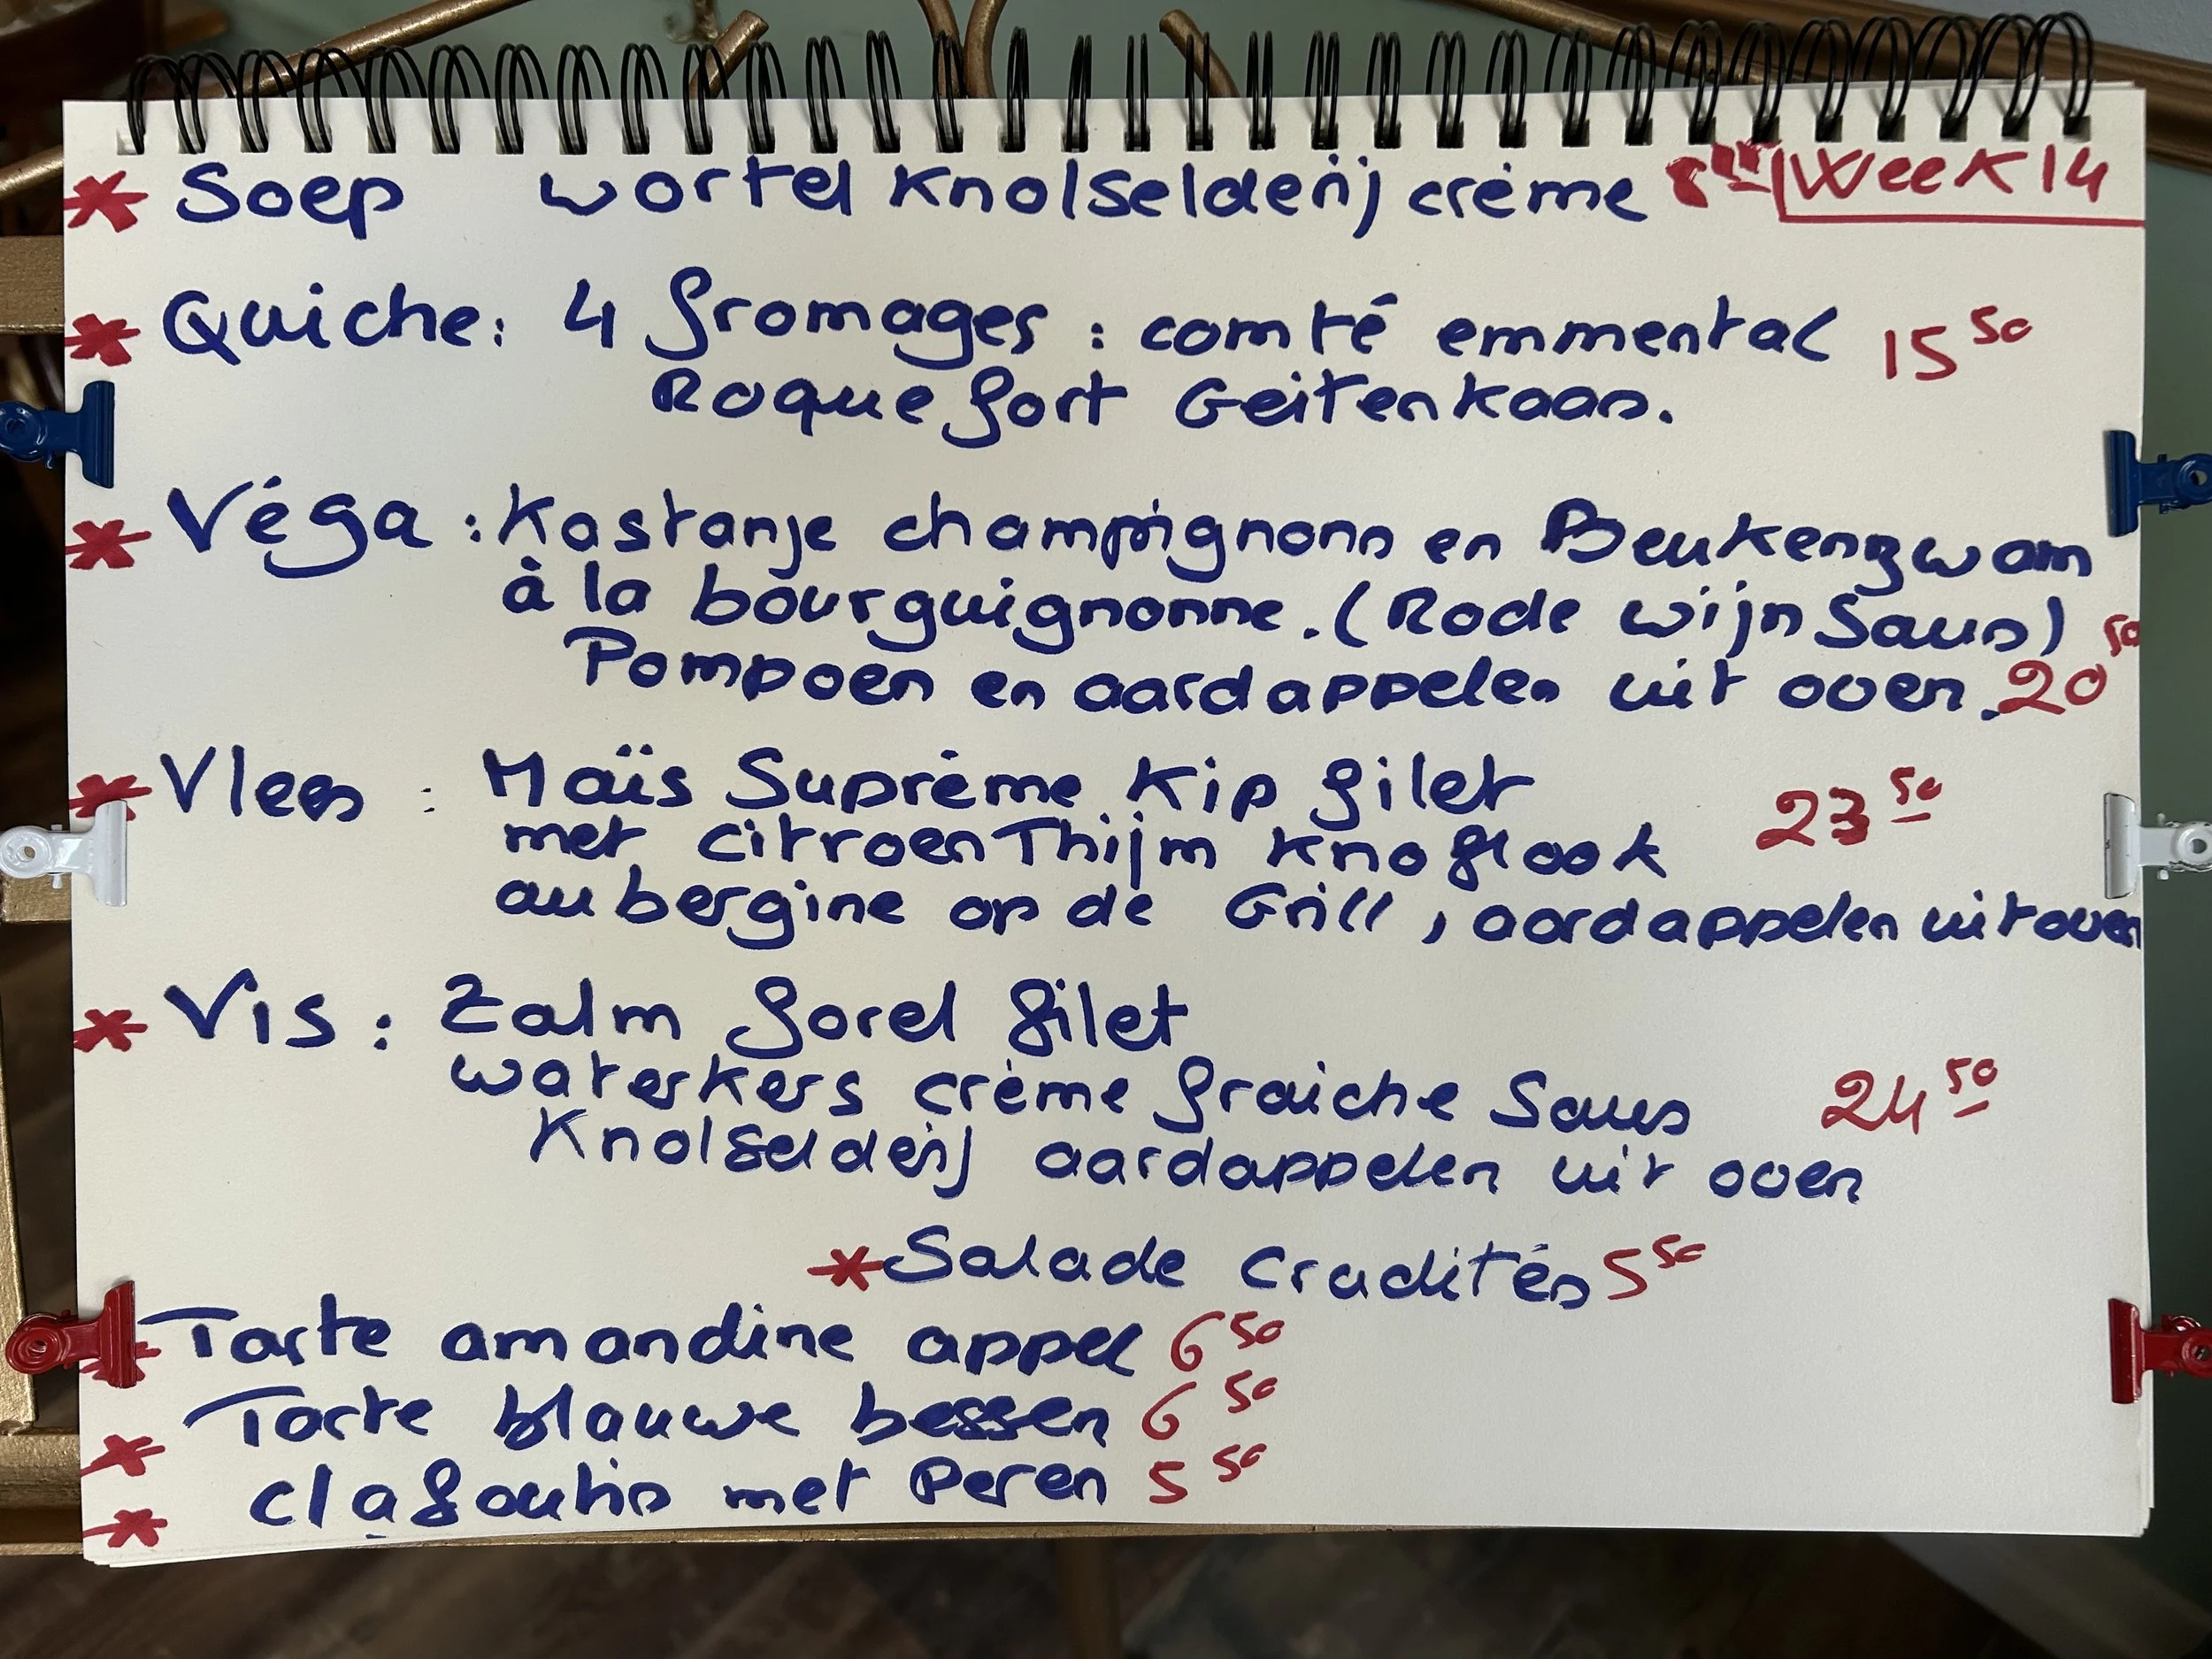 Soep wortel Knolselderij crème Week 14
Quiche: 4 fromages : comté emmental 15 50
Roquefort Geitenkaas.
Véga : Kastanje champignons en Beukenzwam
à la bourguignonne. (Rode wijn Saus)
Pompoen en aardappelen uit oven. 20 50
Vlees : Maïs Suprème Kip filet 23 50
met citroen Thijm knoflook
aubergine op de Grill, aardappelen uit oven
Vis : Zalm forel filet
waterkers crème fraiche Saus 24 50
Knolselderij aardappelen uit oven
Salade crudités 5 50
Tarte amandine appel 6 50
Tarte blauwe bessen 6 50
clafoutis met Peren 5 50